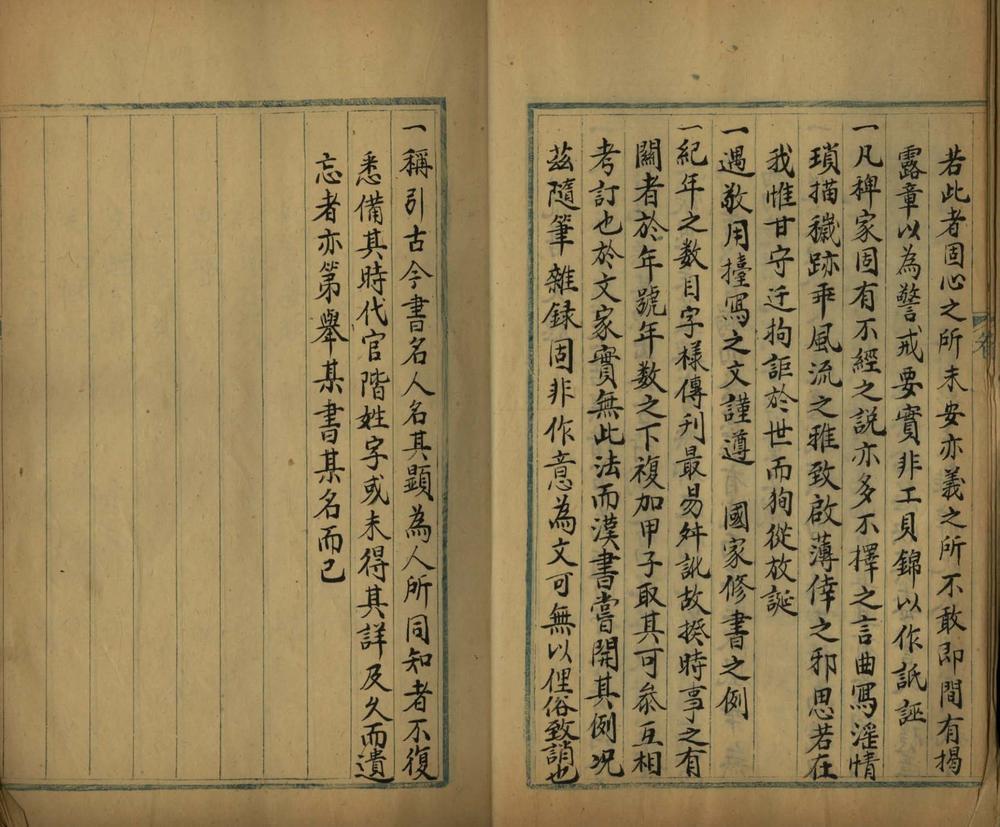 若此者固心之所未安亦義之所不敢即間有揭
露章以為警戒要實非工貝錦以作詆誣
一凡稗家固有不經之說亦多不擇之言曲寫淫情
瑣描穢跡乖風流之雅致啟薄倖之邪思若在
我惟甘守迂拘詎於世而狥從放誕
一遇敬用擡寫之文謹遵 國家修書之例
一紀年之数目字樣傳刊最易舛訛故揆時事之有
關者於年號年数之下複加甲子取其可叅互相
考訂也於文家實無此法而漢書嘗開其例况
茲隨筆雜録固非作意為文可無以俚俗致誚也
一稱引古今書名人名其顯為人所同知者不復
悉備其時代官階姓字或未得其詳及久而遺
忘者亦第舉某書某名而已